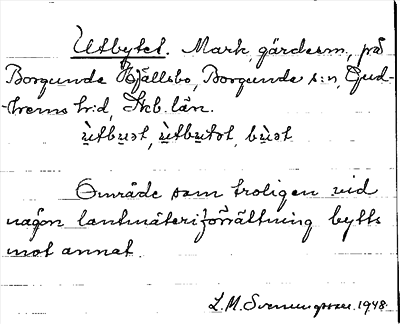 Utbytet. Mark, gärdesm, på
Borgunda Bjällsbo, Borgunda s:n, Gud-
hems h:d, Skb. län.
ùtbu̇ət, ùtbutət, bu̇ət
Område som troligen vid
någon lantmäteriförrättning bytts
mot annat.
L. M. Svenungsson. 1948.